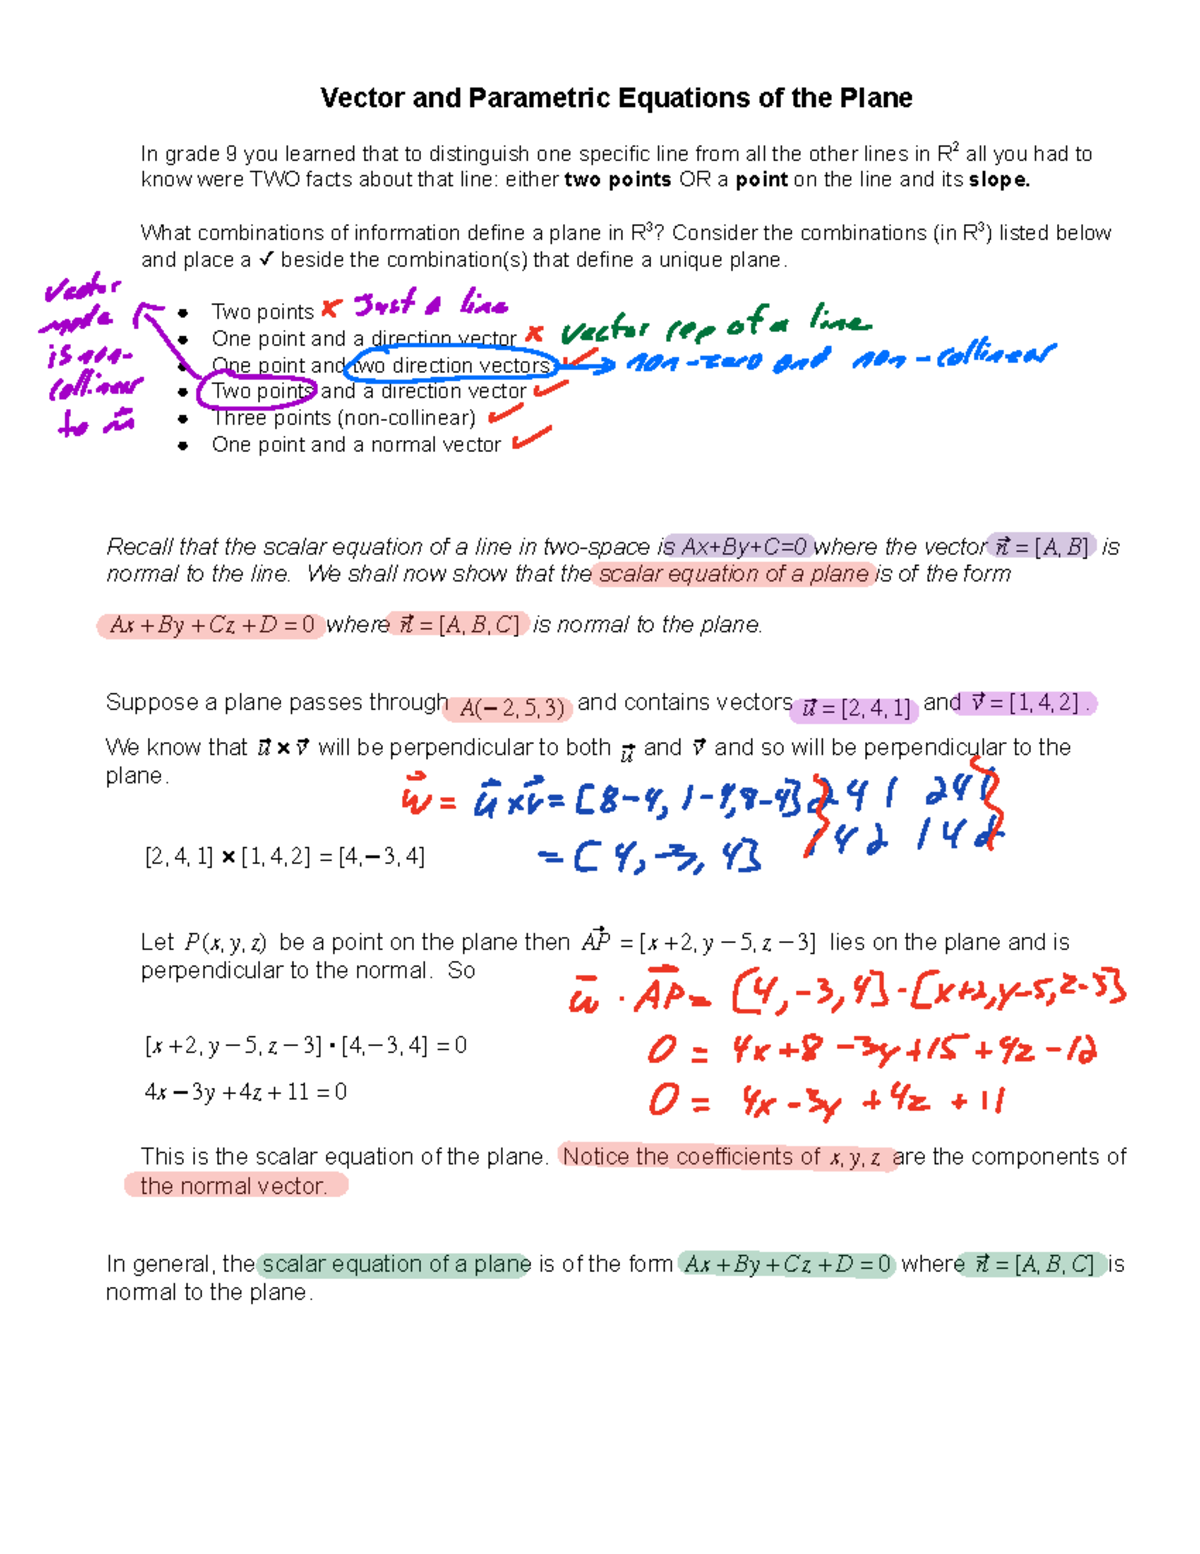 Vector and Parametric Equations of the Plane
In grade 9 you learned that to distinguish one specific line from all the other lines in R² all you had to
know were TWO facts about that line: either two points OR a point on the line and its slope.
What combinations of information define a plane in R³? Consider the combinations (in R³) listed below
and place a ✓ beside the combination(s) that define a unique plane.
vector
made
is non-
collinear
to u⃗
• Two points ✗ Just a line
• One point and a direction vector ✗ vector rep of a line
• One point and two direction vectors ✓ → non-zero and non-collinear
• Two points and a direction vector ✓
• Three points (non-collinear) ✓
• One point and a normal vector ✓
Recall that the scalar equation of a line in two-space is Ax+By+C=0 where the vector n⃗ = [A, B] is
normal to the line. We shall now show that the scalar equation of a plane is of the form
Ax + By + Cz + D = 0 where n⃗ = [A, B, C] is normal to the plane.
Suppose a plane passes through A(− 2, 5, 3) and contains vectors u⃗ = [2, 4, 1] and v⃗ = [1, 4, 2] .
We know that u⃗ × v⃗ will be perpendicular to both u⃗ and v⃗ and so will be perpendicular to the
plane.
w⃗ = u⃗ × v⃗ = [8-4, 1-4, 8-4] 2 4 1 2 4 1
1 4 2 1 4 2
= [4, -3, 4]
[2, 4, 1] × [1, 4, 2] = [4, − 3, 4]
Let P(x, y, z) be a point on the plane then AP⃗ = [x + 2, y − 5, z − 3] lies on the plane and is
perpendicular to the normal. So
w⃗ · AP⃗ = [4, -3, 4] · [x+2, y-5, z-3]
[x + 2, y − 5, z − 3] • [4, − 3, 4] = 0
0 = 4x + 8 - 3y + 15 + 4z - 12
4x − 3y + 4z + 11 = 0
0 = 4x - 3y + 4z + 11
This is the scalar equation of the plane. Notice the coefficients of x, y, z are the components of
the normal vector.
In general, the scalar equation of a plane is of the form Ax + By + Cz + D = 0 where n⃗ = [A, B, C] is
normal to the plane.